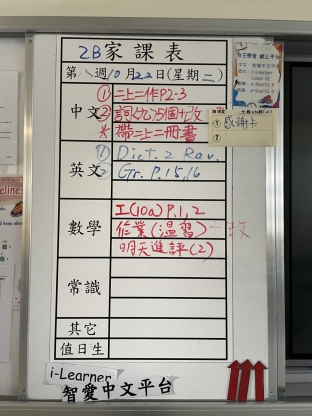 2B家課表
第八週10月22日(星期二)
中文
① 二上一作P2-3
② 詞
③ 帶二上二冊書
十月23日
① 感謝卡
②
英文
① Dict. 2 Rev.
② Gr. P.15,16
數學
工(10a) P.1,2
作業(溫習)
明天進評(2)
常識
其它
值日生
i-Learner
智愛中文平台